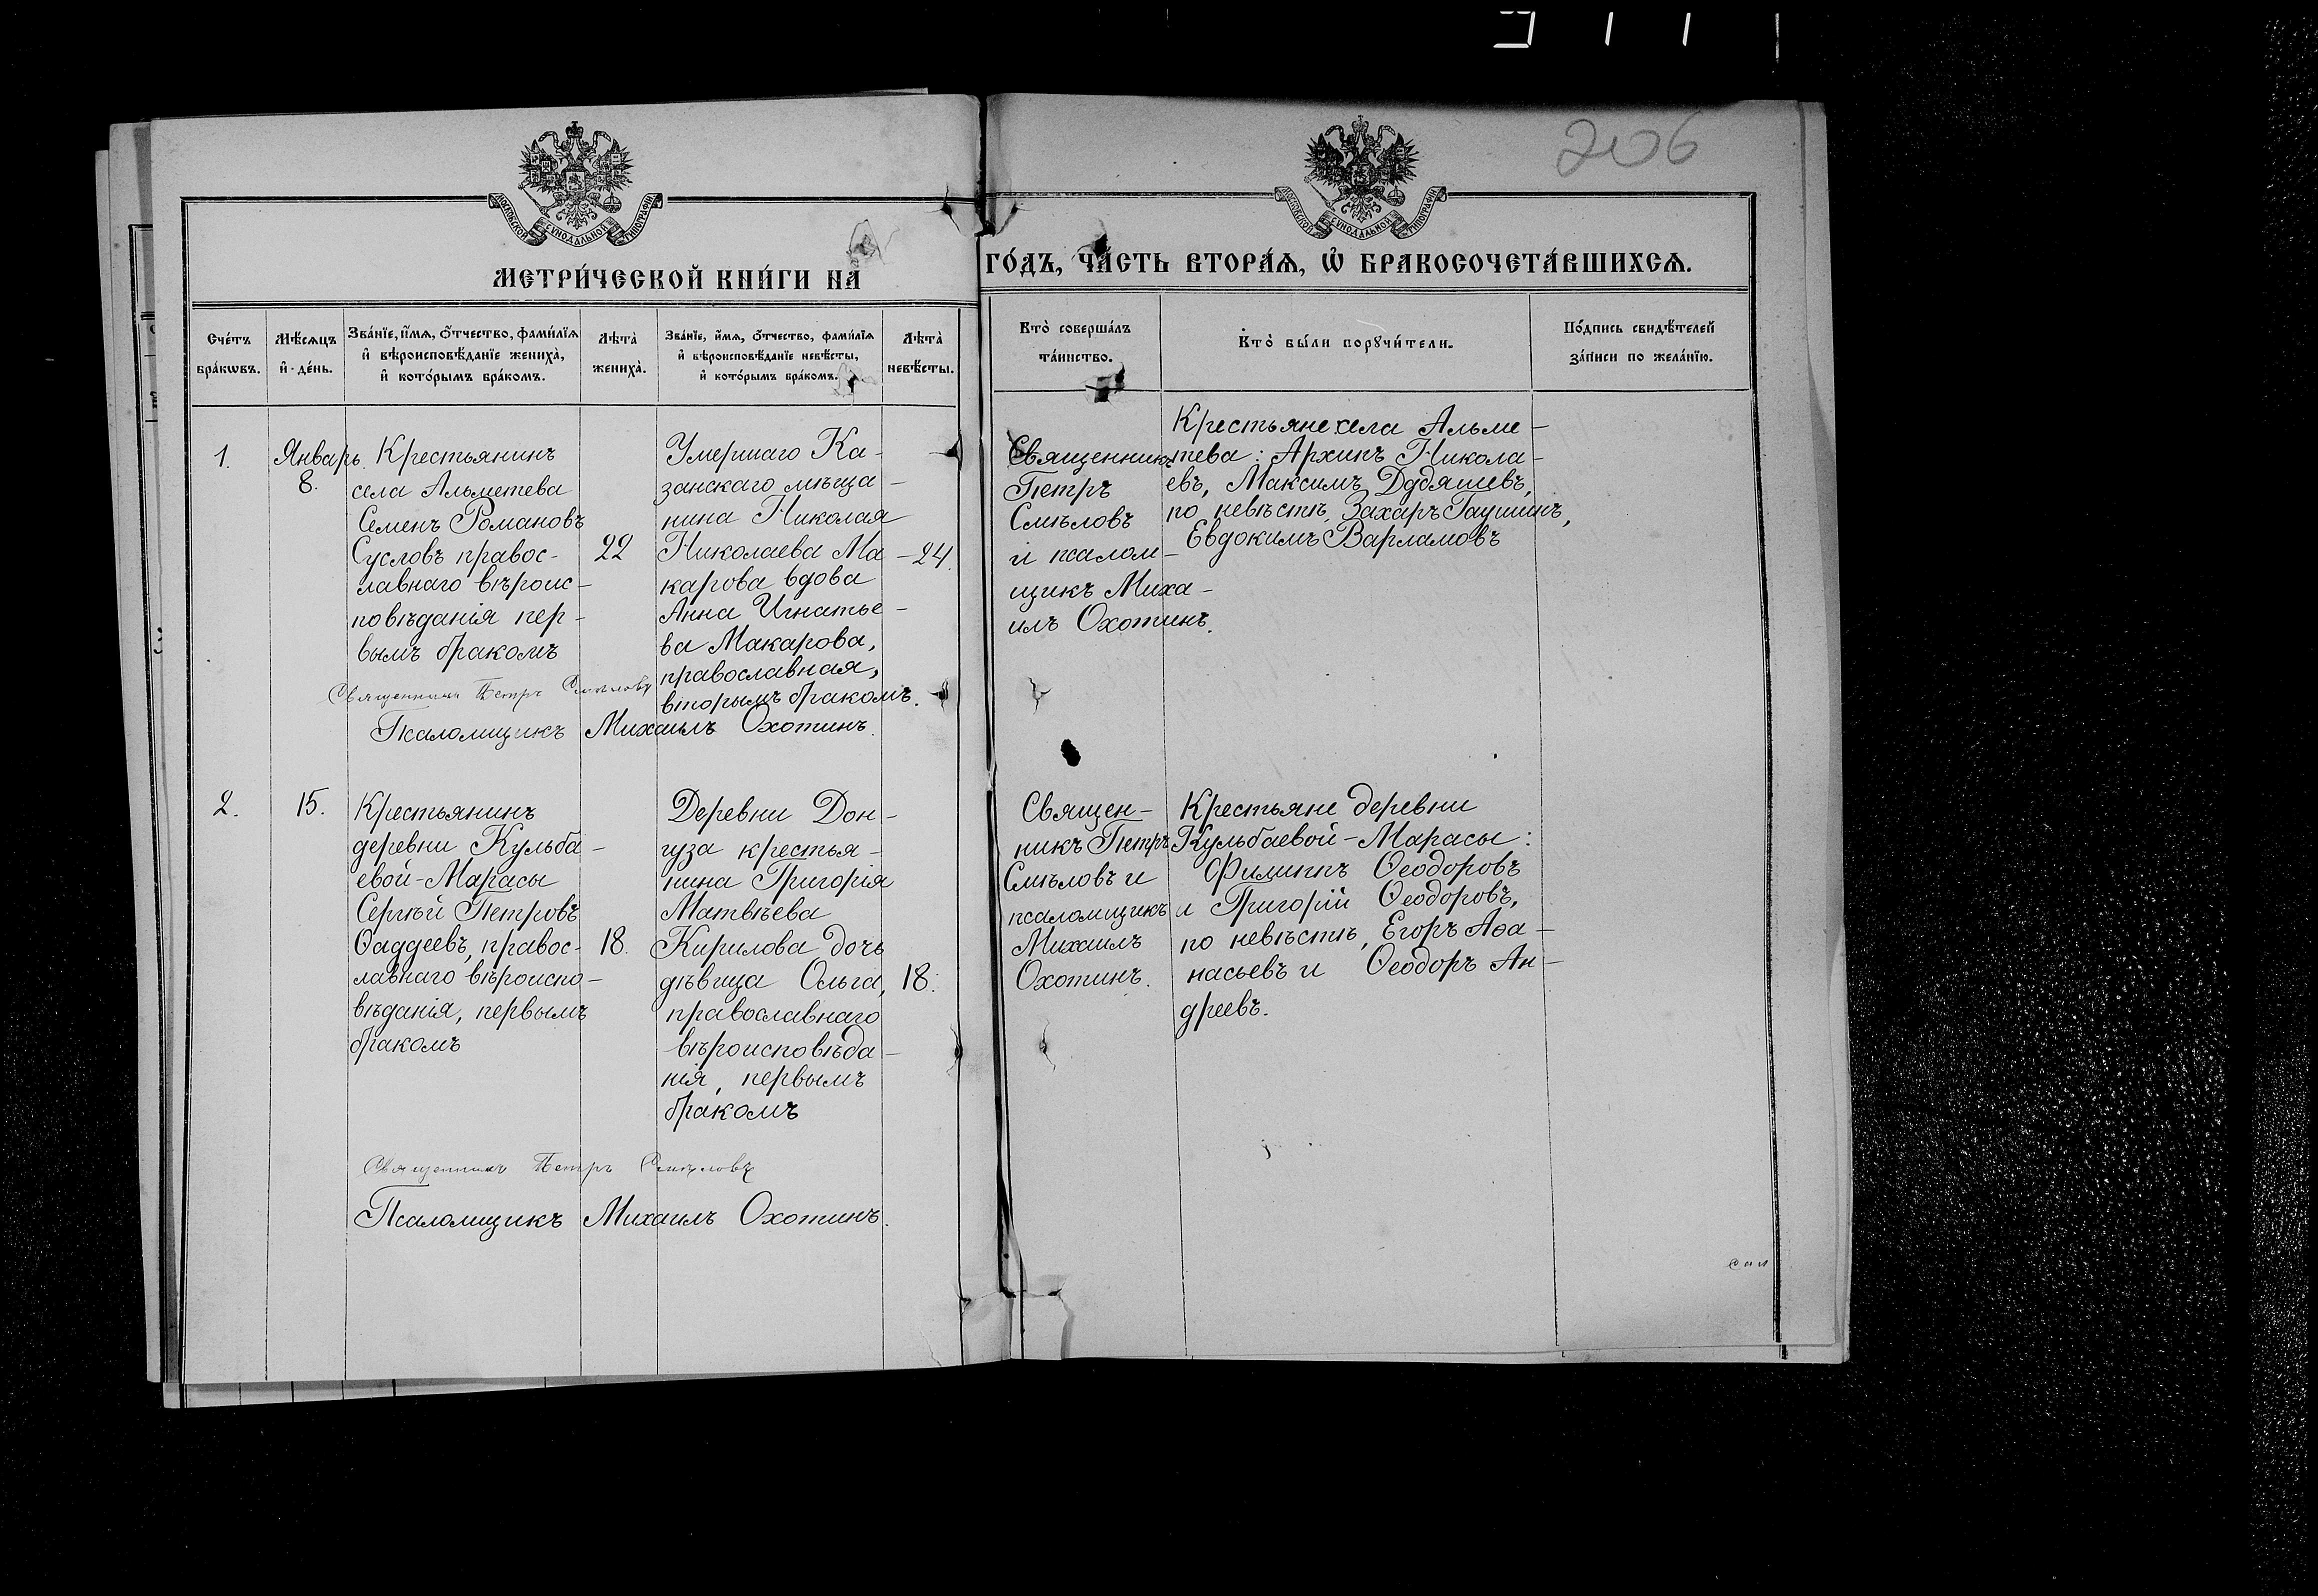 206
МОСКОВСКОЙ СѴНОДАЛЬНОЙ ТИПОГРАФІИ
МОСКОВСКОЙ СѴНОДАЛЬНОЙ ТИПОГРАФІИ
МЕТРИ́ЧЕСКОЙ КНИ́ГИ НА
ГО́ДЪ, ЧА́СТЬ ВТОРА́Ѧ, Ѽ БРАКОСОЧЕТА́ВШИХСѦ.
Сче́тъ
бра́кѡвъ.
Мѣ́сѧцъ
и҆ де́нь.
Зва́нїе, и҆́мѧ, ѻ҆́тчество, фами́лїѧ
и҆ вѣроисповѣ́данїе жениха̀,
и҆ кото́рымъ бра́комъ.
Лѣта̀
жениха̀.
Зва́нїе, и҆́мѧ, ѻ҆́тчество, фами́лїѧ
и҆ вѣроисповѣ́данїе невѣ́сты,
и҆ кото́рымъ бра́комъ.
Лѣта̀
невѣ́сты.
Кто̀ соверша́лъ
та́инство.
Кто̀ бы́ли порꙋчи́тели.
По́дпись свидѣ́телей
за́писи по жела́нїю.
1.
Январь
8.
Крестьянинъ
села Альметева
Семенъ Романовъ
Сусловъ правос-
лавнаго вѣроис-
повѣданія пер-
вымъ бракомъ
22
Умершаго Ка-
занскаго мѣща-
нина Николая
Николаева Ма-
карова вдова
Анна Игнатье-
ва Макарова,
православная,
вторымъ бракомъ.
24.
Священникъ
Петръ
Смѣловъ
и псалом-
щикъ Миха-
илъ Охотинъ.
Крестьяне села Альме-
тева: Архипъ Никола-
евъ, Максимъ Дудяшевъ,
по невѣстѣ, Захаръ Гаушинъ,
Евдокимъ Варламовъ
Священникъ Петръ Смѣловъ
Псаломщикъ Михаилъ Охотинъ.
2.
15.
Крестьянинъ
деревни Кульба-
евой-Марасы
Сергѣй Петровъ
Ѳаддеевъ, правос-
лавнаго вѣроиспо-
вѣданія, первымъ
бракомъ
18.
Деревни Дон-
гуза крестья-
нина Григорія
Матвѣева
Кирилова дочь
дѣвица Ольга,
православнаго
вѣроисповѣда-
нія, первымъ
бракомъ
18.
Священ-
никъ Петръ
Смѣловъ и
псаломщикъ
Михаилъ
Охотинъ.
Крестьяне деревни
Кульбаевой-Марасы:
Филиппъ Ѳеодоровъ
и Григорій Ѳеодоровъ,
по невѣстѣ, Егоръ Аѳа-
насьевъ и Ѳеодоръ Ан-
дреевъ.
Священникъ Петръ Смѣловъ
Псаломщикъ Михаилъ Охотинъ.